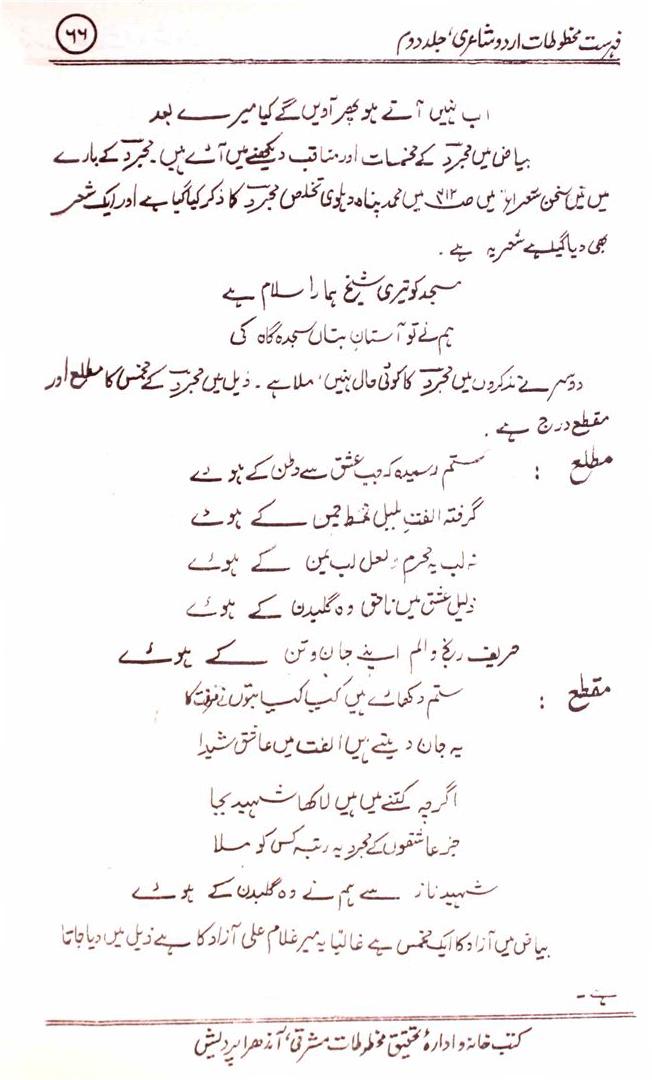 فہرست مخطوطات اردو شاعری، جلد دوم
۶۶
اب نہیں آتے ہو پھر آویں گے کیا میرے بعد
بیاض میں مجرد کے مخمسات اور مناقب دیکھنے میں آئے ہیں۔ مجرد کے بارے
میں سخن شعراء میں صـ میں محمد پناہ دہلوی تخلص مجرد کا ذکر کیا گیا ہے اور ایک شعر
بھی دیا گیا ہے شعر یہ ہے۔
مسجد کو تیری شیخ ہمارا سلام ہے
ہم نے تو آستانِ بتاں سجدہ گاہ کی
دوسرے تذکروں میں مجرد کا کوئی حال نہیں، ملا ہے۔ ذیل میں مجرد کے مخمس کا مطلع اور
مقطع درج ہے۔
مطلع : ستم رسیدہ کہ جب عشق سے وطن کے ہوئے
گرفتہ الفتِ بلبل نمط چمن کے ہوئے
نہ لب یہ محرم لعل لب یمن کے ہوئے
ذلیل عشق میں ناحق وہ گلبدن کے ہوئے
حریف رنج و الم اپنے جان و تن کے ہوئے
مقطع : ستم دکھائے ہیں کیا کیا بتوں نے فرقت کا
یہ جان دیتے ہیں الفت میں عاشق شیدا
اگرچہ کتنے میں ہیں لاکھا شہید بجا
جز عاشقوں کے مجرد یہ رتبہ کس کو ملا
شہید ناز سے ہم نے وہ گلبدن کے ہوئے
بیاض میں آزاد کا ایک مخمس ہے غالباً یہ میر غلام علی آزاد کا ہے ذیل میں دیا جاتا
ہے۔
کتب خانہ و ادارۂ تحقیق مخطوطات مشرقی، آندھرا پردیش